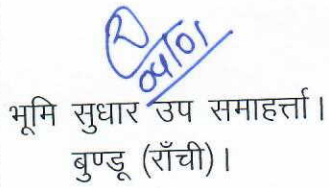 04/01
भूमि सुधार उप समाहर्त्ता।
बुण्डू (राँची)।